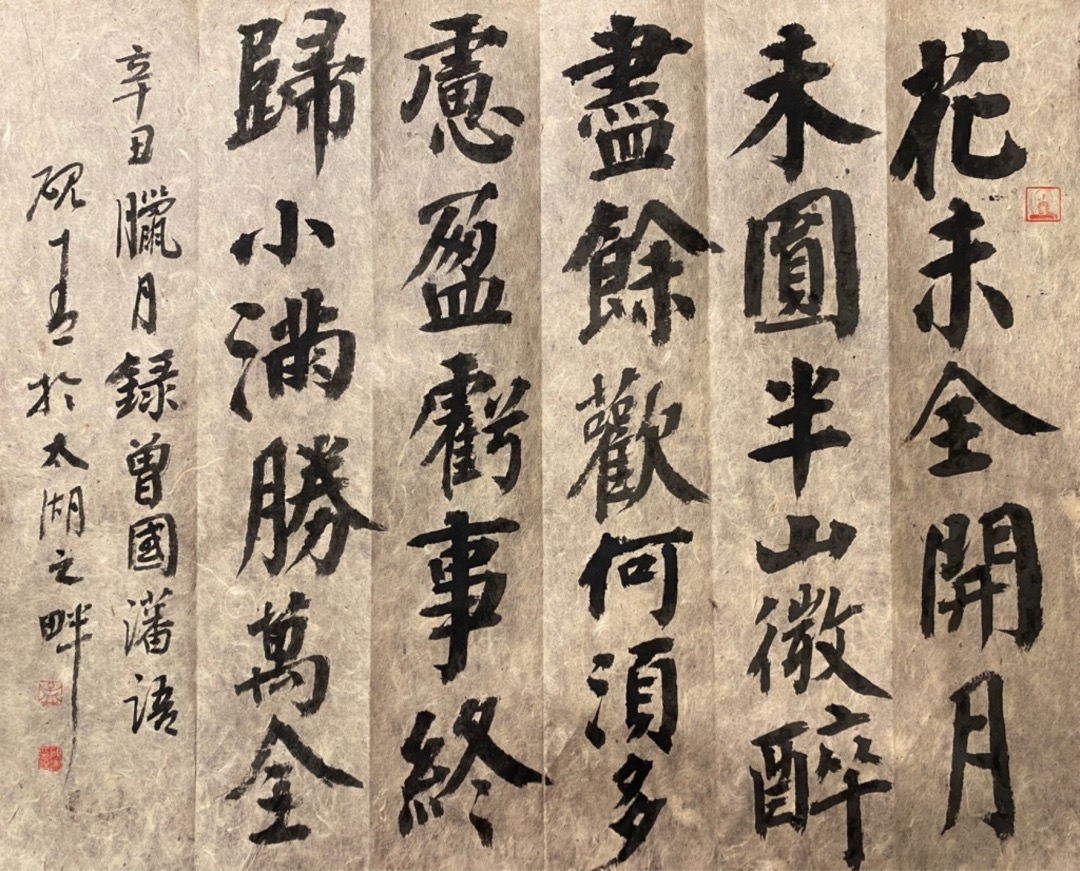 花未全開月
未圓半山微醉
盡餘歡何須多
慮盈虧事終
歸小滿勝萬全
辛丑臘月録曾國藩語
於太湖之畔